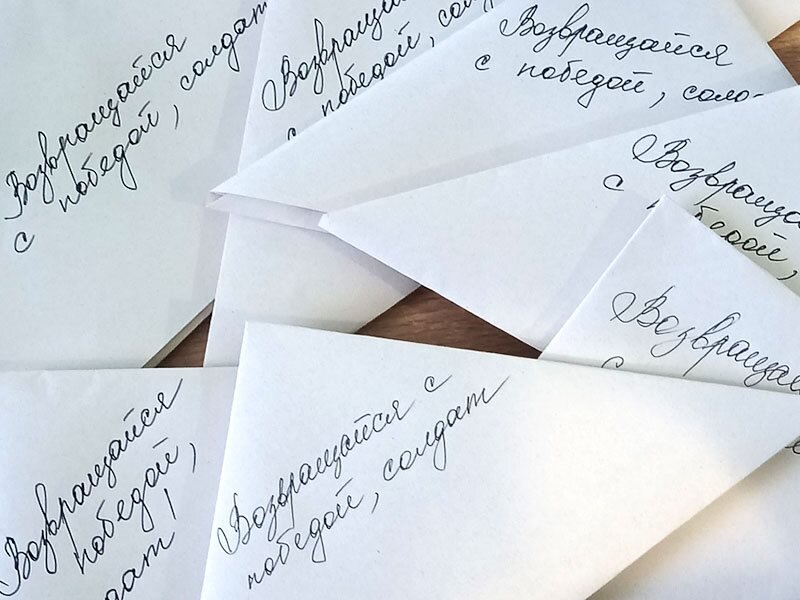 Возвращайся
с победой, солдат
Возвращайся
с победой, солд
Возвращайся
с победой, солда
Возвращайся
с победой,
Возвращайся
с
Возвращайся
победой,
дат!
Возвращайся с
победой, солдат